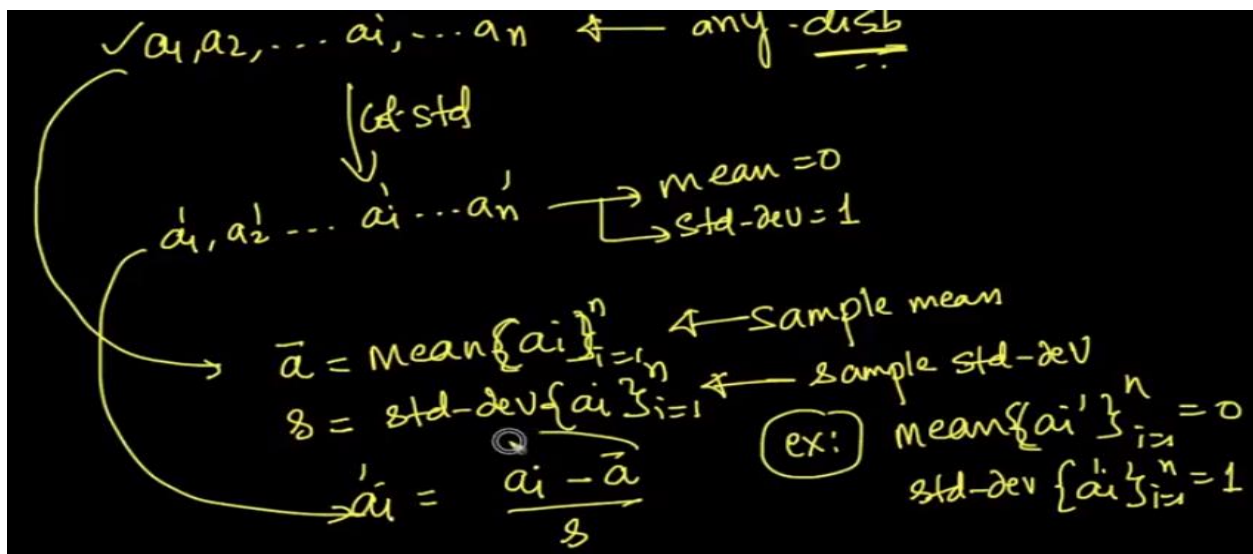 ✓ a1, a2, ... ai, ... an ← any disb
↓ col std
a1', a2' ... ai' ... an' → mean = 0
→ std-dev = 1
ā = mean{ai}ⁿi=1 ← sample mean
s = std-dev{ai}ⁿi=1 ← sample std-dev
ex: mean{ai'}ⁿi=1 = 0
ai' = (ai - ā) / s
std-dev {ai'}ⁿi=1 = 1